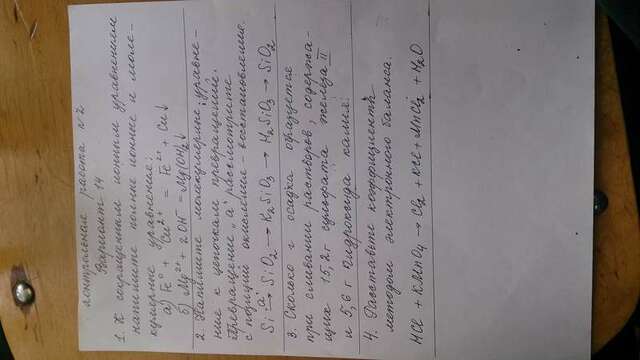 контрольная работа №2
Вариант 14
1. К сокращенным ионным уравнениям
напишите полные ионные и моле-
кулярные уравнения:
а) Fe⁰ + Cu²⁺ = Fe²⁺ + Cu↓
б) Mg²⁺ + 2OH⁻ = Mg(OH)₂↓
2. Напишите молекулярные уравне-
ния к цепочкам превращений.
Превращение "а" рассмотрите
с позиций окисления-восстановления.
Si →"а" SiO₂ → K₂SiO₃ → H₂SiO₃ → SiO₂
3. Сколько г осадка образуется
при сливании растворов, содержа-
щих 15,2г сульфата железа II
и 5,6 г гидроксида калия.
4. Расставьте коэффициенты
методом электронного баланса.
HCl + KMnO₄ → Cl₂ + KCl + MnCl₂ + H₂O